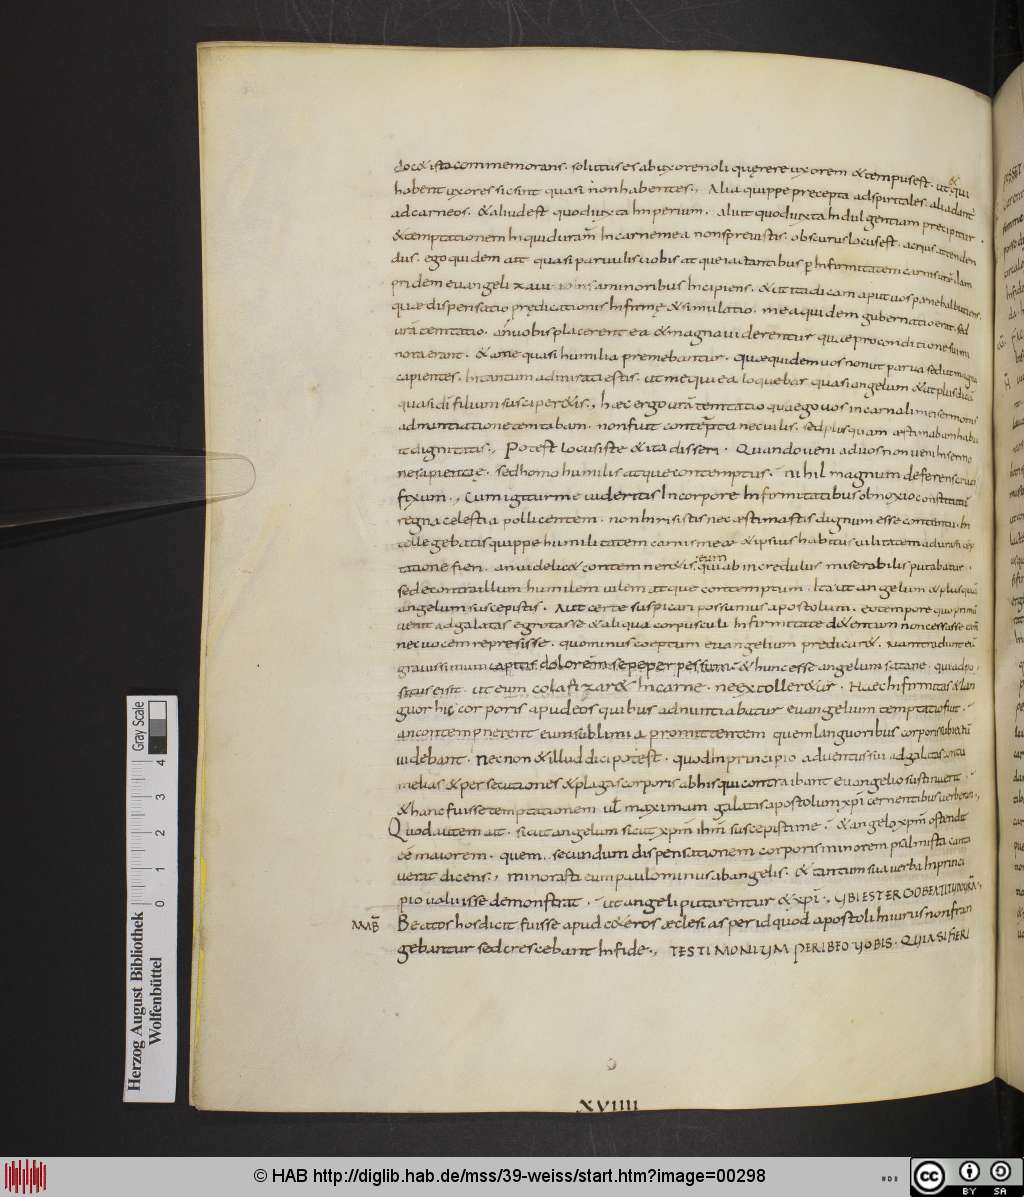 doc& ista commemorans. solutus es ab uxore noli quęrere uxorem & tempus est. ut & qui
habent uxores sic sint quasi non habentes. Alia quippe precepta ad spiritales. alia dant
ad carneos. & aliud est quod iuxta Imperium. aliut quod iuxta Indulgentiam precipitur.
& temptationem in qui duram In carne mea non sprevistis. obscurus locus est. acrius attenden
dus. ego quidem ait quasi parvulis vobis atque lactantibus p Infirmitatem carnis urae Iam
pridem evangelizavi a minoribus Incipiens. & ut ita dicam aput vos pene balbutiens.
quae dispensatio predicationis Infirme & simulatio. mea quidem gubernatio erat. sed
ura temtatio. an vobis placerent ea & magna viderentur quae pro conditione sui mi
nora erant. & a me quasi humilia premebantur. quae quidem vos non ut parva sed ut magna
capientes. In tantum admirati estis. ut me qui ea loquebar quasi angelum & ut plus dica
quasi di filium susciper&is. haec ergo ura temtatio qua ego vos in carnali mei sermonis
adnuntiatione temtabam. non fuit contempta nec vilis. sed plus quam aestimabam habu
it dignitatis. Potest locus iste & ita disseri. Quando veni ad vos non veni In sermo
ne sapientię. sed homo humilis atque contemptus. nihil magnum deferens cruci
fixum. Cum igitur me videritis In corpore Infirmitatibus obnoxio constitutu
regna celestia pollicentem. non Inrisistis nec aestimastis dignum esse contentui. In
tellegebatis quippe humilitatem carnis meae & ipsius habitus vilitatem ad uram tep
tatione fieri. an videlic& contemner&is eum qui ab incredulis miserabilis putabatur.
sed e contra illum humilem vilem atque contemptum. Ita ut angelum & plus quam
angelum suscepistis. Aut certe suspicari possumus apostolum. eo tempore quo primu
venit ad galatas egrotasse & aliqua corpusculi Infirmitate d&entum non cessasse tam
nec vocem repressisse. quominus coeptum evangelium predicar&. Nam tradunt eu
gravissimum capitis dolorem sepe perpessum & hunc esse angelum satane. qui adpo
situs ei sit. ut eum colafizar& In carne. ne extoller&ur. Haec Infirmitas & lan
guor hic corporis apud eos quibus adnuntiabatur evangelium temptatio fuit.
an contempnerent eum sublimia promittentem quem languoribus corporis subiectu
videbant. nec non & illud dici potest. quod in principio adventus sui ad galatas contu
melias & persecutiones & plagas corporis ab his qui contra ibant evangelio sustinuerit.
& hanc fuisse temptationem vl maximam galatis apostolum xpi cernentibus verberari.
Quod autem ait. sicut angelum sicut xpm ihm suscepistis me. & angelo xpm ostendit
ee maiorem. quem secundum dispensationem corporis minorem psalmista canta
verat dicens. minorasti eum paulo minus ab angelis. & tantum sua verba In princi
pio valuisse demonstrat. ut angeli putarentur & xpi. UBI EST ERGO BEATITUDO URA.
AMB Beatos hos dicit fuisse apud c&eros aeclesias per id quod apostoli Iniurius non fran
gebantur sed crescebant In fide. TESTIMONIUM PERIBEO UOBIS. QUIA SI FIERI
XVIIII
Herzog August Bibliothek
Wolfenbüttel
0 1 2 3 4
Gray Scale
© HAB http://diglib.hab.de/mss/39-weiss/start.htm?image=00298
cc BY SA